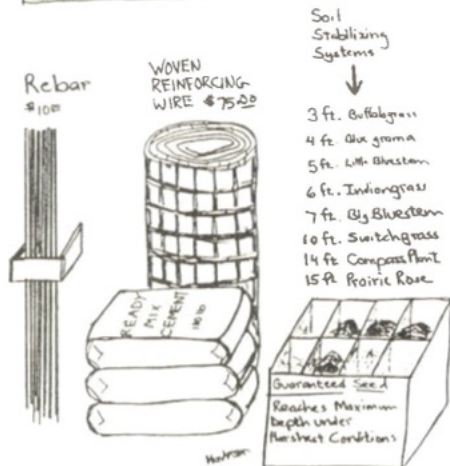 Rebar
$10.00
WOVEN
REINFORCING
WIRE $75.00
Soil
Stabilizing
Systems
3 ft. Buffalograss
4 ft. Blue grama
5 ft. Little Bluestem
6 ft. Indiangrass
7 ft. Big Bluestem
10 ft. Switchgrass
14 ft Compass Plant
15 ft Prairie Rose
READY
MIX
CEMENT
Guaranteed Seed
Reaches Maximum
Depth under
Harshest Conditions